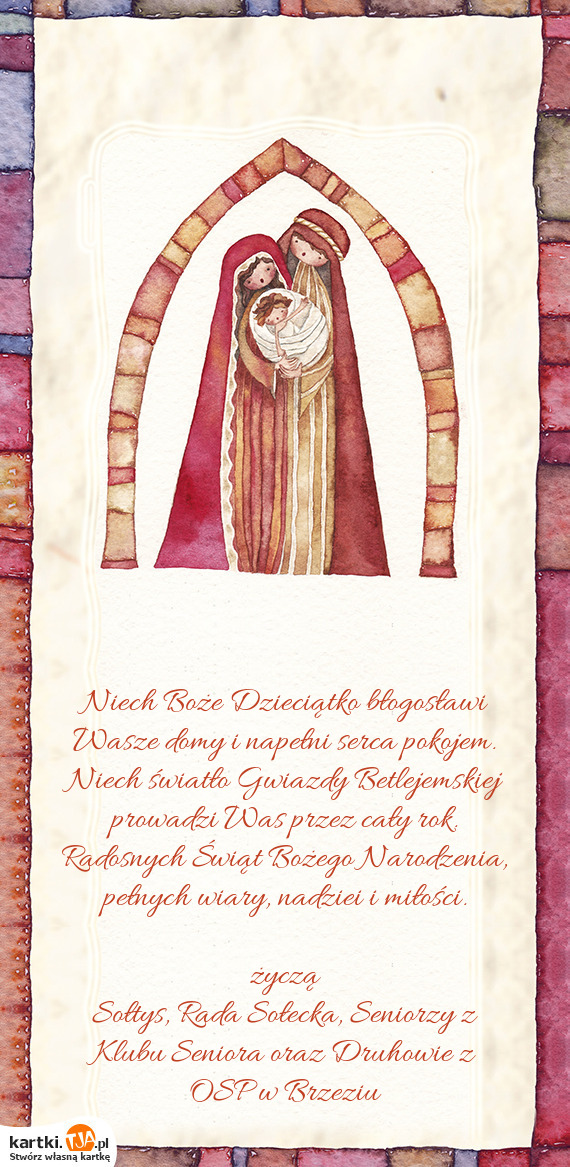 Niech Boże Dzieciątko błogosławi
Wasze domy i napełni serca pokojem.
Niech światło Gwiazdy Betlejemskiej
prowadzi Was przez cały rok.
Radosnych Świąt Bożego Narodzenia,
pełnych wiary, nadziei i miłości.
życzą
Sołtys, Rada Sołecka, Seniorzy z
Klubu Seniora oraz Druhowie z
OSP w Brzeziu
kartki.TJA.pl
Stwórz własną kartkę